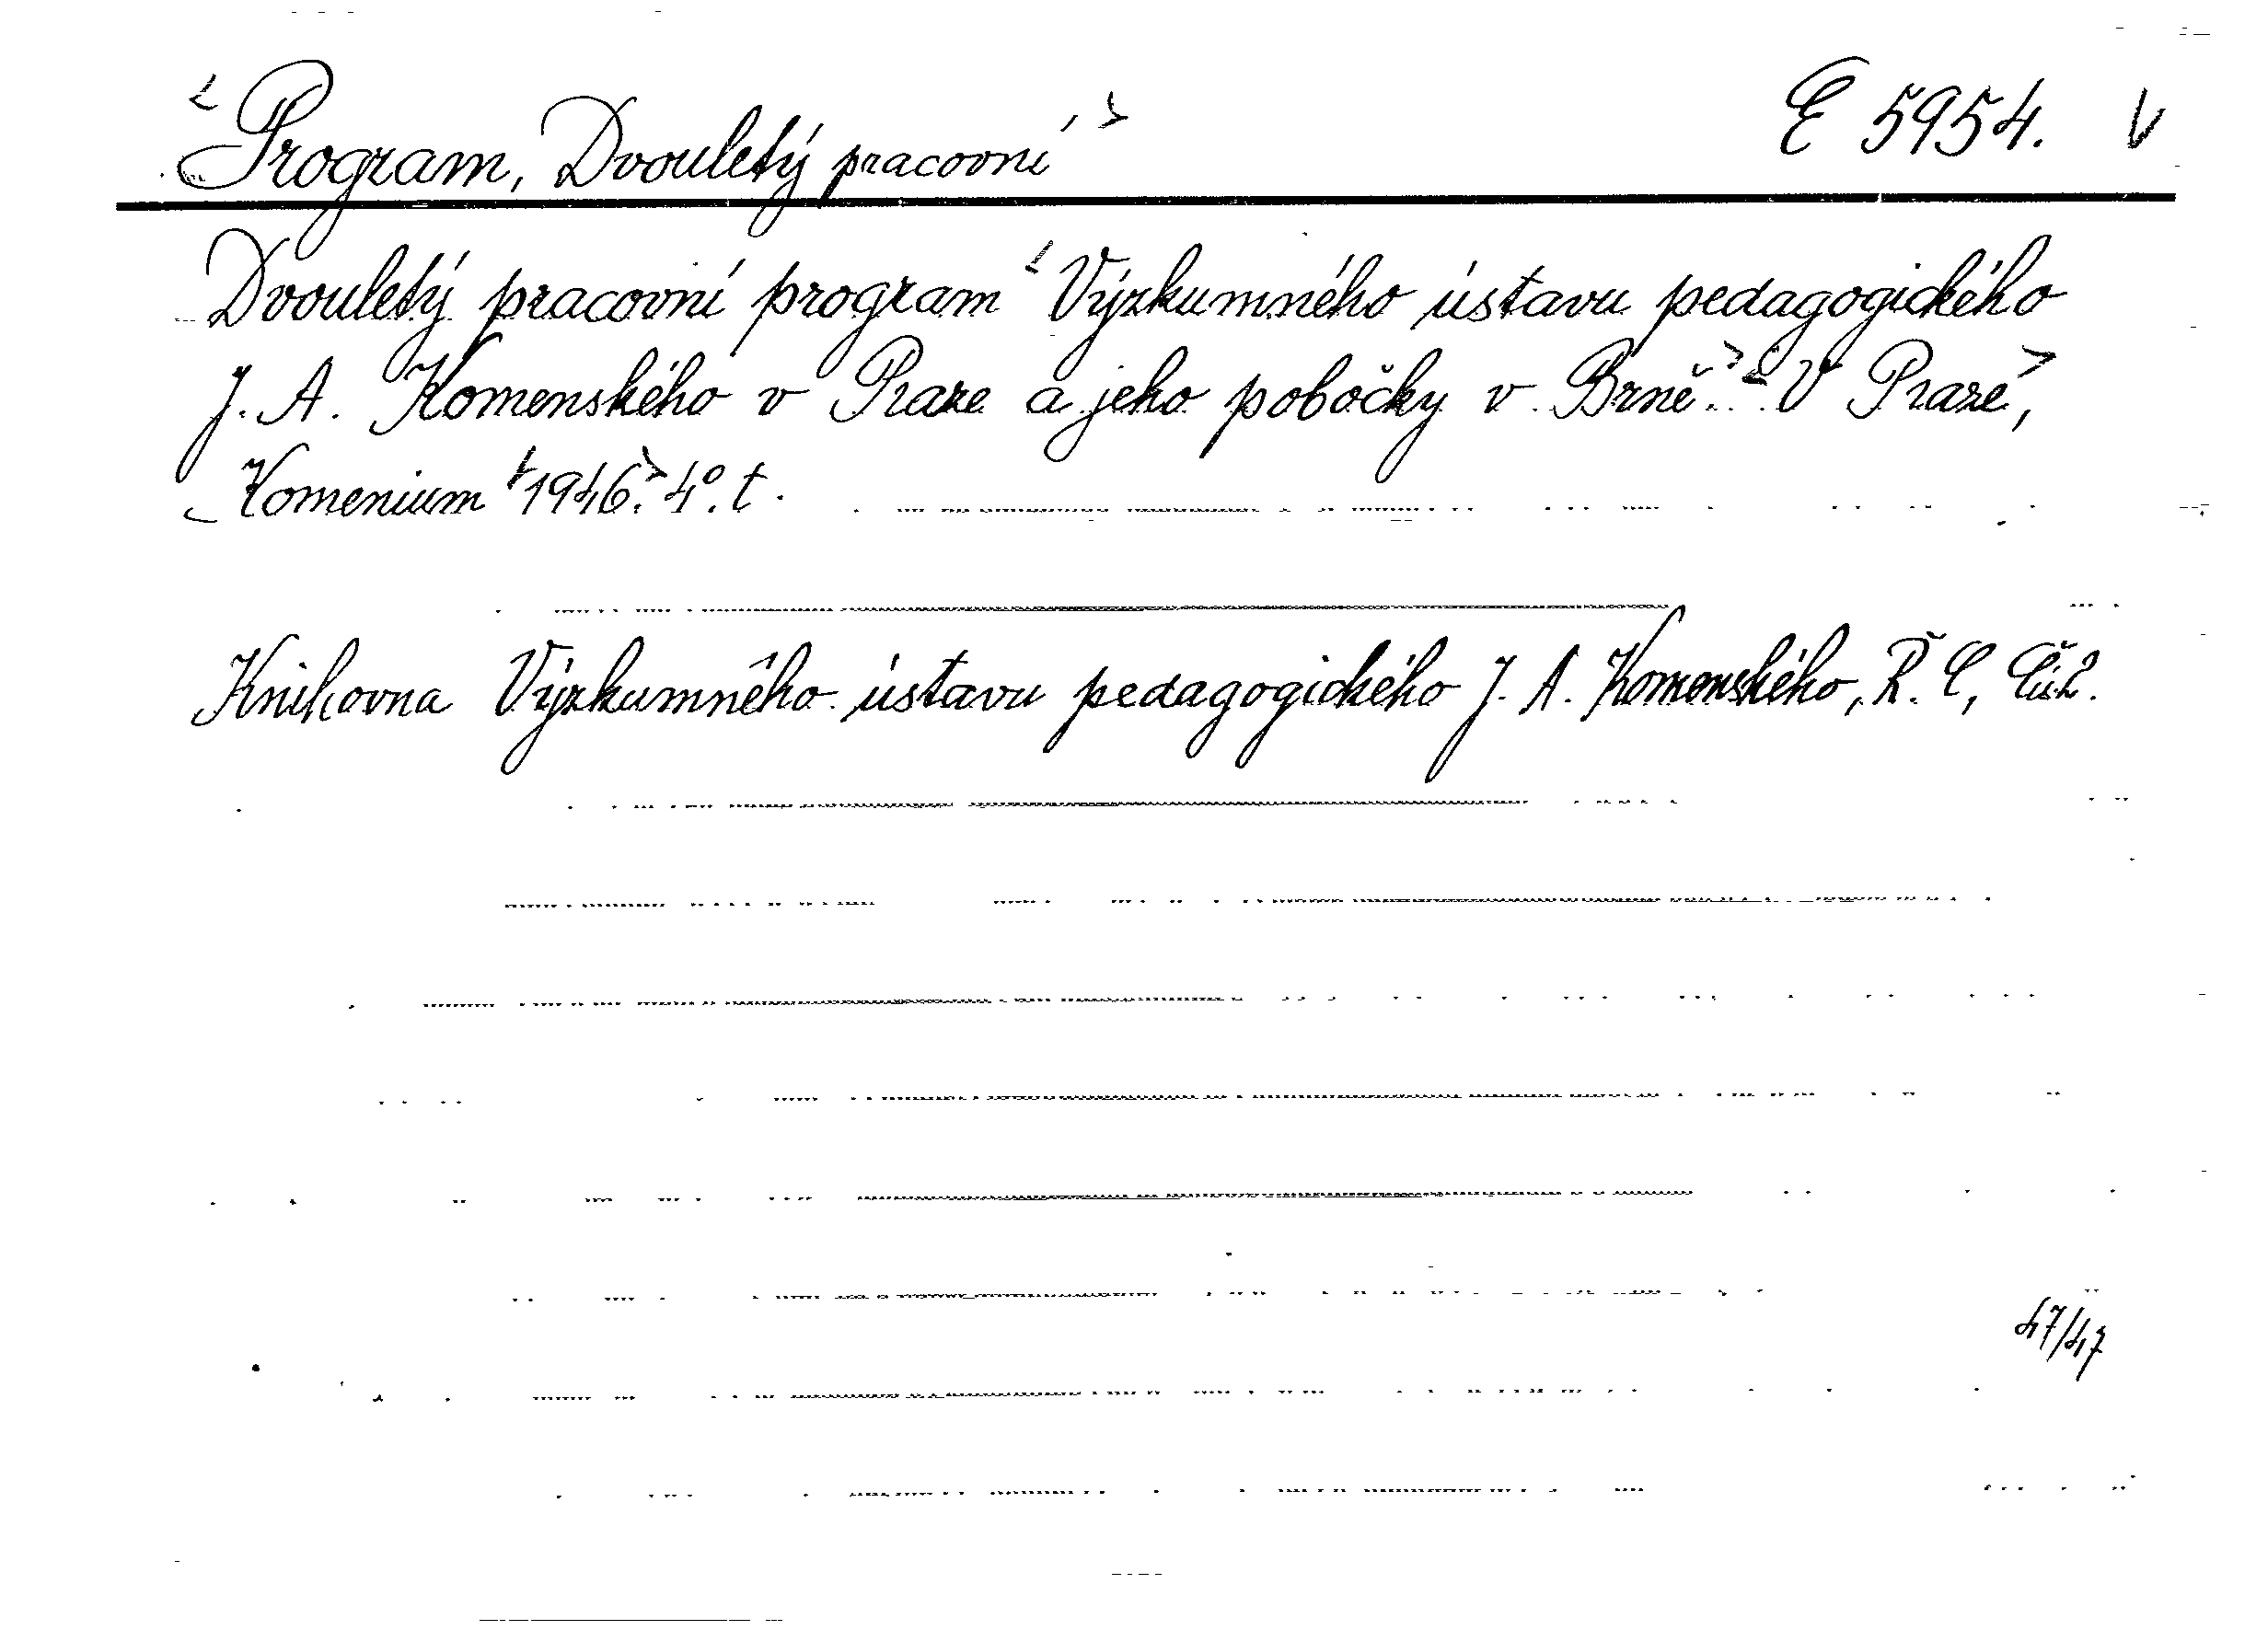 <Program, Dvouletý pracovní> E 5954. V
Dvouletý pracovní program <Výzkumného ústavu pedagogického
J. A. Komenského v Praze a jeho pobočky v Brně.> <V Praze>,
Komenium <1946.> 4°. t.
Knihovna Výzkumného ústavu pedagogického J. A. Komenského, Ř. C,
47/47